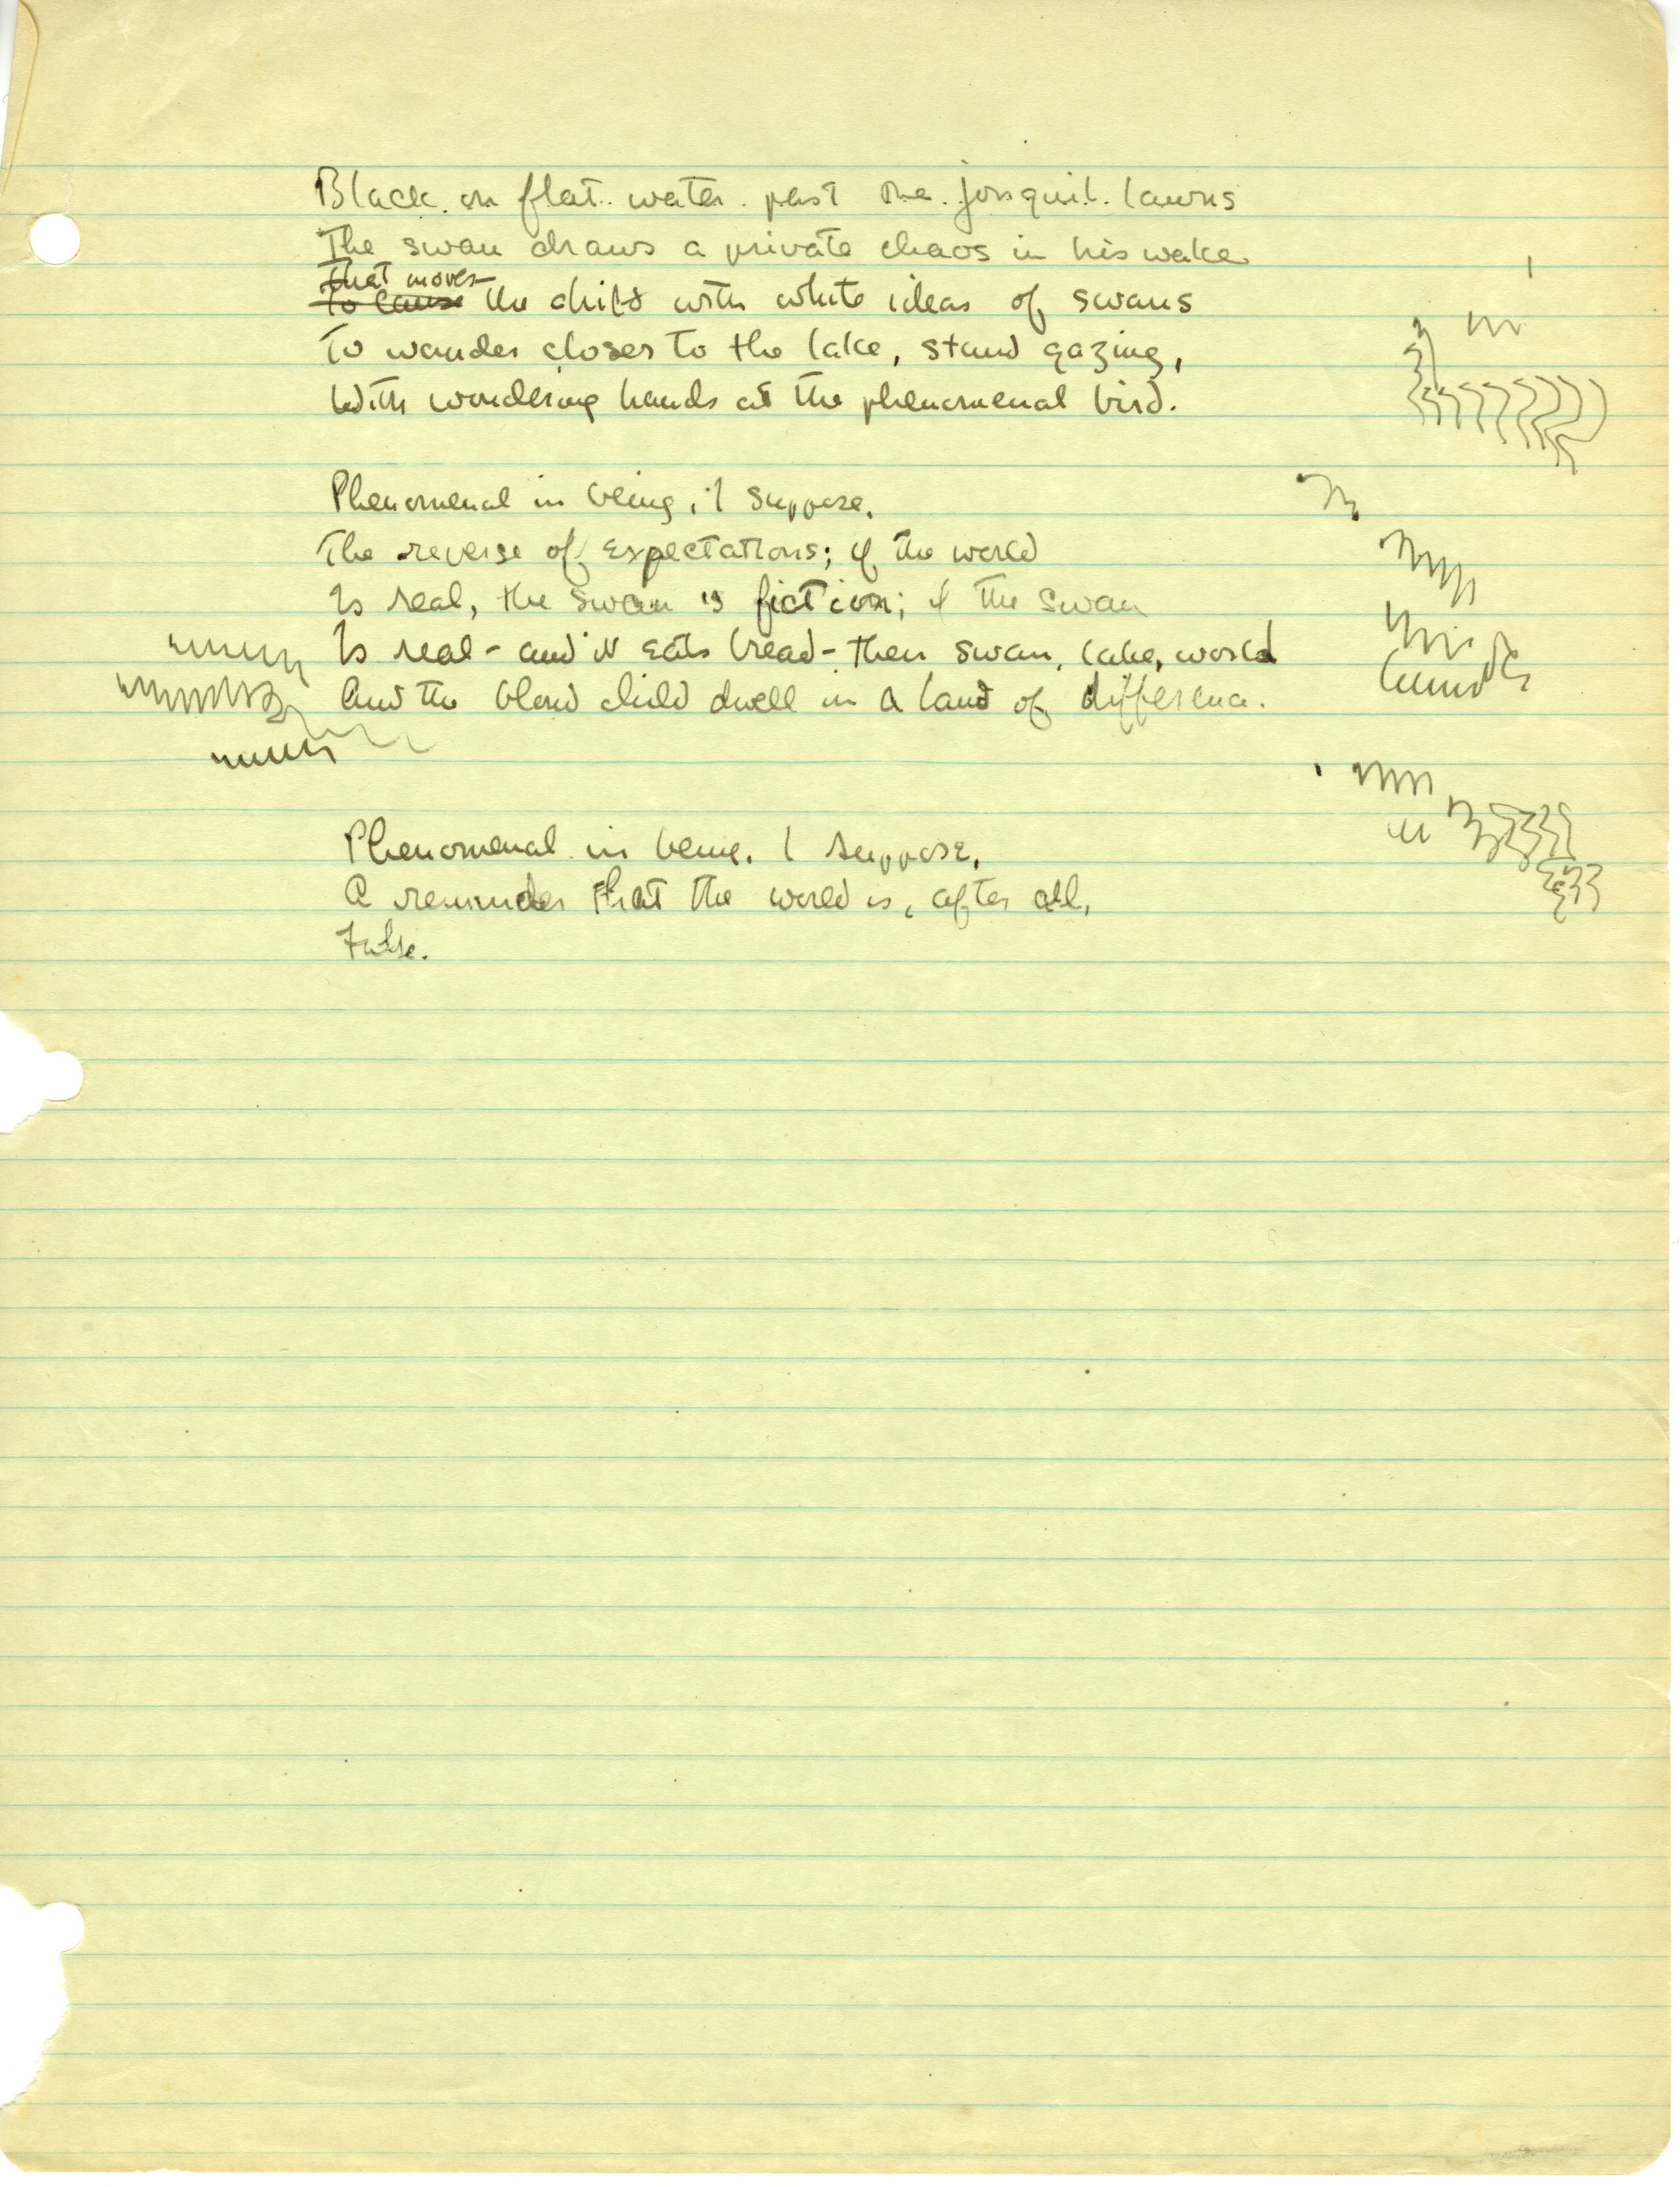 Black on flat water past the jonquil lawns
The swan draws a private chaos in his wake
That moves
To cause the child with white ideas of swans
To wander closer to the lake, stand gazing,
With wondering hands at the phenomenal bird.
Phenomenal in being, I suppose,
The reverse of expectations; if the world
Is real, the swan is fiction; if the swan
Is real - and it eats bread - then swan, lake, world
And the blond child dwell in a land of difference.
Phenomenal in being, I suppose,
A reminder that the world is, after all,
False.